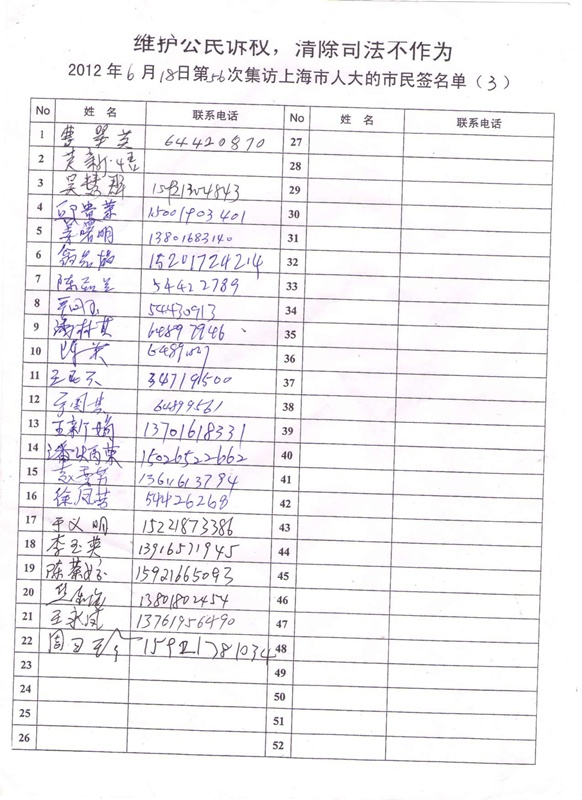 维护公民诉权，清除司法不作为
2012年6月18日第56次集访上海市人大的市民签名单（3）
No 姓 名 联系电话 No 姓 名 联系电话
1 曹翠英 64420870 27
2 28
3 29
4 15001903401 30
5 姜曙明 13801683140 31
6 15201724214 32
7 54422789 33
8 54430913 34
9 64897946 35
10 陈英 36
11 34719500 37
12 64899561 38
13 王新娟 13701618331 39
14 潘炳荣 15026522662 40
15 13611613794 41
16 徐凤英 54426268 42
17 于义明 15221873386 43
18 李玉英 13916571945 44
19 15921665093 45
20 13801802454 46
21 王永凤 13761956490 47
22 15921781034 48
23 49
24 50
25 51
26 52